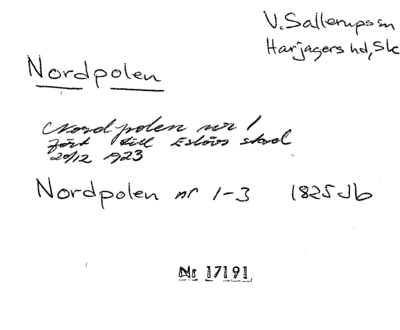 V. Sallerups sn
Harjagers hd, Sk
Nordpolen
Nordpolen nr 1
fört till Eslövs skol
20/12 1923
Nordpolen nr 1-3 1825 Jb
Nr 17191